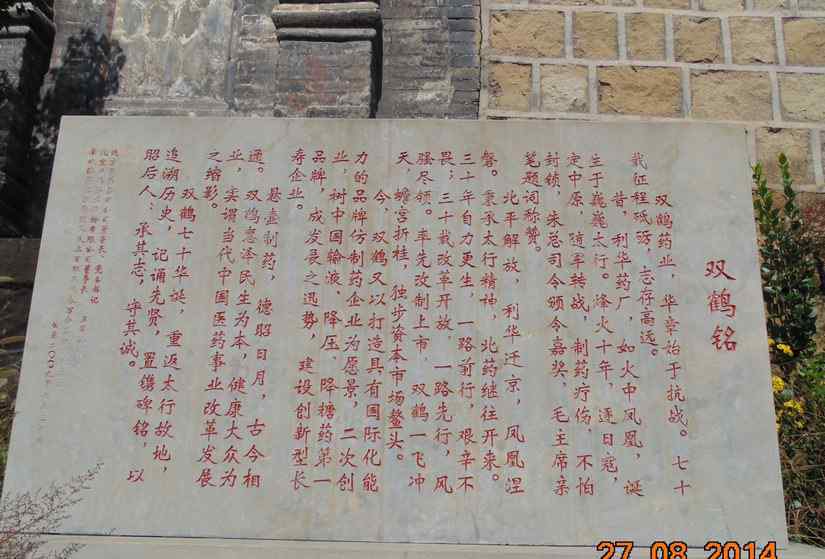 双鹤铭
双鹤药业，华章始于抗战。七十
载征程砥砺，志存高远。
昔，利华药厂，如火中凤凰，诞
生于巍巍太行。烽火十年，逐日寇，
定中原，随军转战，制药疗伤，不怕
封锁，朱总司令颁令嘉奖，毛主席亲
笔题词称赞。
北平解放，利华迁京，凤凰涅
槃。秉承太行精神，北药继往开来。
三十年自力更生，一路前行，艰辛不
畏；三十载改革开放，一路先行，风
骚尽领。率先改制上市，双鹤一飞冲
天，蟾宫折桂，独步资本市场鳌头。
今，双鹤又以打造具有国际化能
力的品牌仿制药企业为愿景，二次创
业，树中国输液、降压、降糖药第一
品牌，成发展之迅势，建设创新型长
寿企业。
悬壶制药，德昭日月，古今相
通。双鹤惠泽民生为本，健康大众为
业，实谓当代中国医药事业改革发展
之缩影。
双鹤七十华诞，重返太行故地，
追溯历史，记诵先贤，置镌碑铭，以
昭后人：承其志，守其诚。
27 08 2014